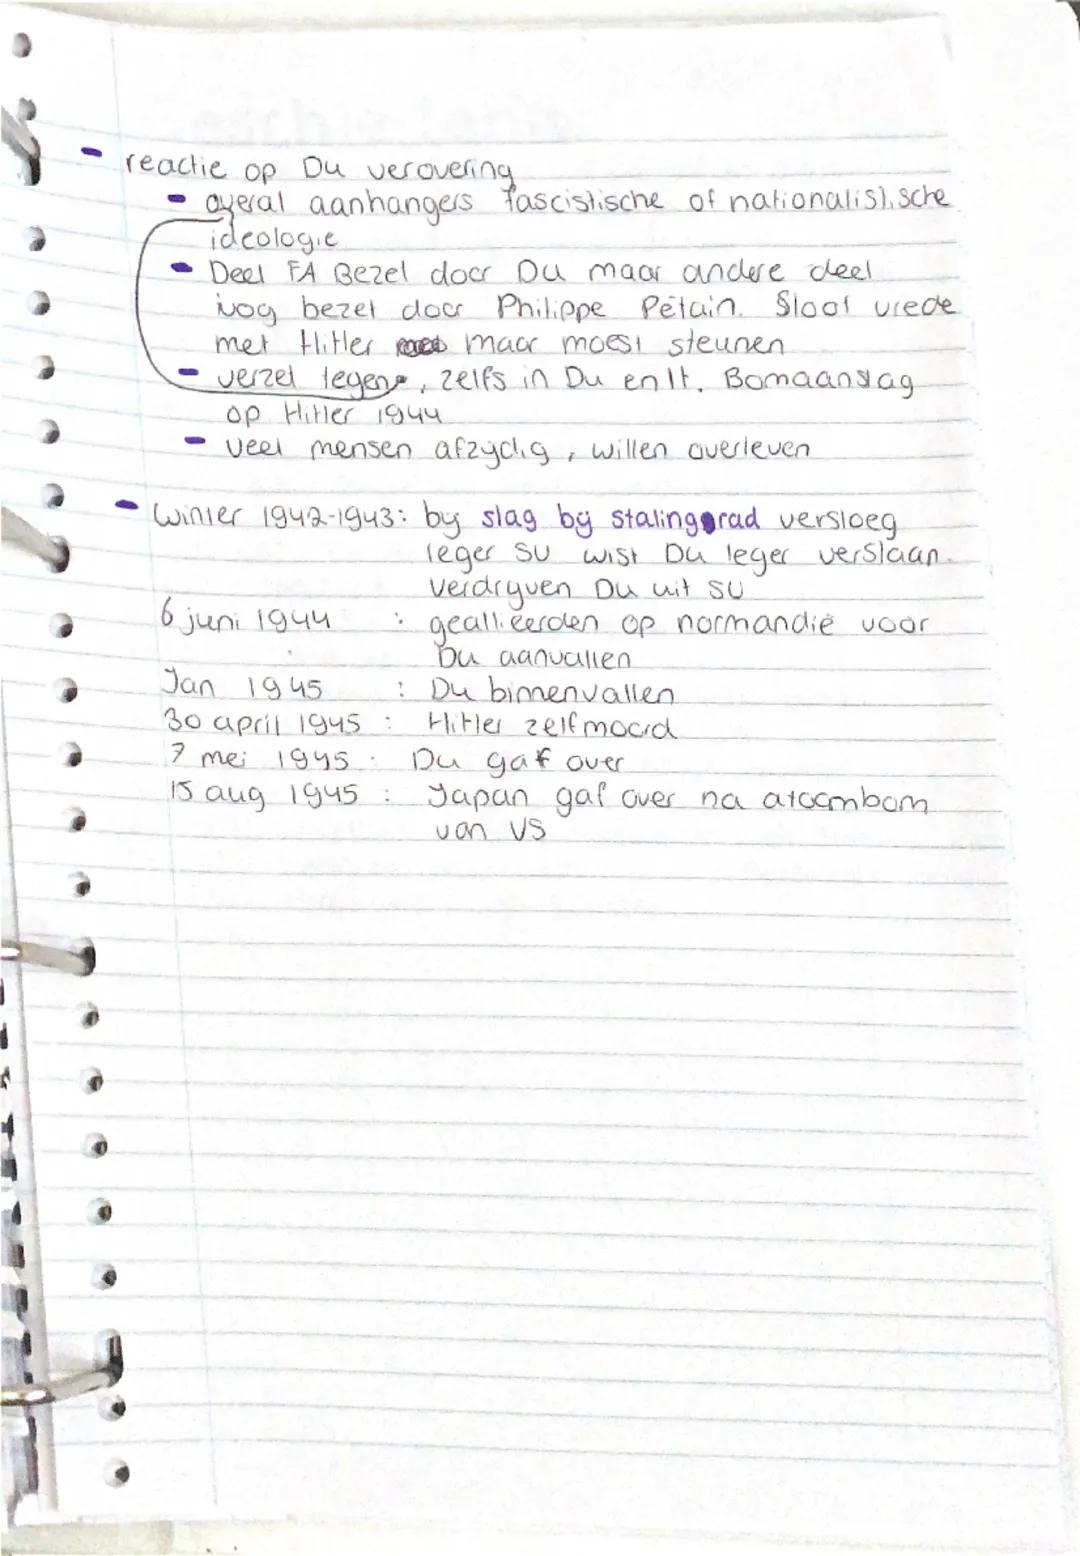 - reactie op Du verovering
- overal aanhangers fascistische of nationalistische
ideologie
- Deel FA Bezet door Du maar andere deel
nog bezet door Philippe Pétain. Sloot vrede
met Hitler maar moest steunen
- verzet tegen, zelfs in Du en It. Bomaanslag
op Hitler 1944
- veel mensen afzijdig, willen overleven
- Winter 1942-1943: bij slag bij Stalingrad versloeg
leger SU wist Du leger verslaan.
Verdrijven Du uit SU
6 juni 1944 : geallieerden op normandië voor
Du aanvallen
Jan 1945 : Du binnenvallen
30 april 1945 : Hitler zelfmoord
7 mei 1945 : Du gaf over
15 aug 1945 : Japan gaf over na atoombom
van VS